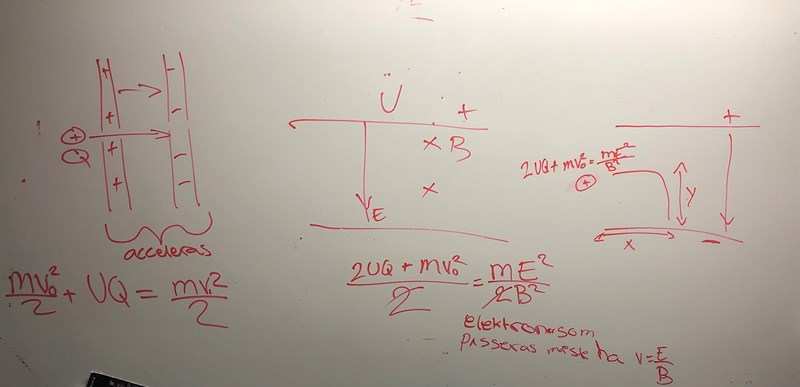 + -
+ -
⊕ + -
Q + -
acceleras
mv₀²/2 + UQ = mv²/2
Ü +
x B
x
E
(2UQ + mv₀²)/2 = mE²/2B²
elektroner som
Passeras måste ha v = E/B
+
2UQ + mv₀² = mE²/B²
⊕
y
x -